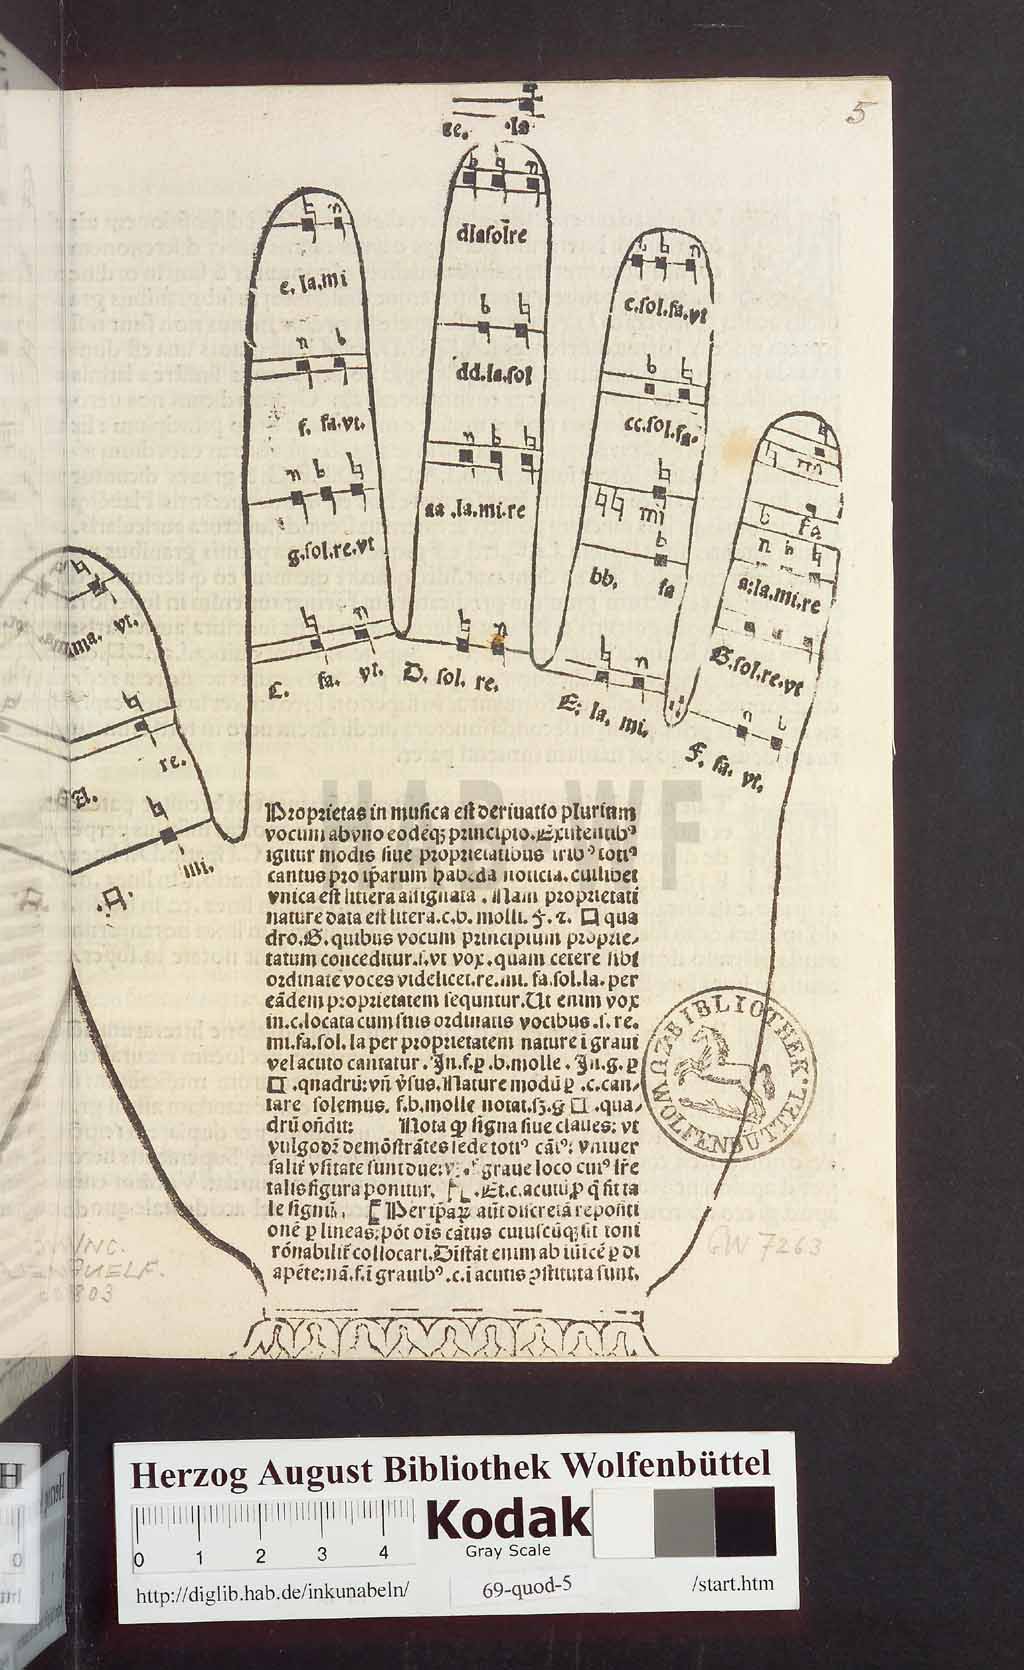 5
ee. la
dlasolre
e. la. mi
c. sol. fa. vt
dd. la. sol
f. fa. vt.
cc. sol. fa.
aa. la. mi. re
mi
g. sol. re. vt
bb. fa
fa
a. la. mi. re
G. sol. re. vt
vt.
C. fa. vt.
D. sol. re.
E. la. mi.
F. fa. vt.
re.
mi.
HAB-WF
Proprietas in musica est deriuatio plurium
vocum ab vno eodēqꝫ principio. Existentibꝰ
igitur modis siue proprietatibus tribꝰ totiꝰ
cantus pro ip̄arum habēda noticia. cuilibet
vnica est littera assignata. Nam proprietati
nature data est litera. c. b. molli. f. ⁊. □ qua
dro. G. quibus vocum principium proprie-
tatum conceditur. s. vt vox. quam cetere sibi
ordinate voces videlicet. re. mi. fa. sol. la. per
eādem proprietatem sequntur. Ut enim vox
in. c. locata cum suis ordinatis vocibus. s. re.
mi. fa. sol. la per proprietatem nature i graui
vel acuto cantatur. In. f. ꝑ. b. molle. In. g. ꝑ
□. quadrū: vn̄ v̄sus. Nature modū ꝑ. c. can-
tare solemus. f. b. molle notat. sꝫ. g □. qua-
drū on̄dit: Nota ꝙ signa siue claues: vt
vulgo dꝛ demōstrātes sede totiꝰ cātꝰ: vniuer
salit̄ vsitate sunt due: graue loco cuiꝰ lr̄e
talis figura ponitur. Et. c. acutū ꝓ q̄ fit ta
le signū. Per ip̄aꝝ aūt discretā repositi
onē ꝑ lineas: pōt oīs cātus cuiuscūqꝫ sit toni
rōnabilit̄ collocari. Distāt enim ab iuicē ꝑ di
apēte: nā. f. i grauibꝰ. c. i acutis ꝯstituta sunt.
BIBLIOTHEK
WOLFENBÜTTEL
INC.
GUELF.
GW 7263
Herzog August Bibliothek Wolfenbüttel
0 1 2 3 4
Kodak
Gray Scale
http://diglib.hab.de/inkunabeln/ 69-quod-5 /start.htm